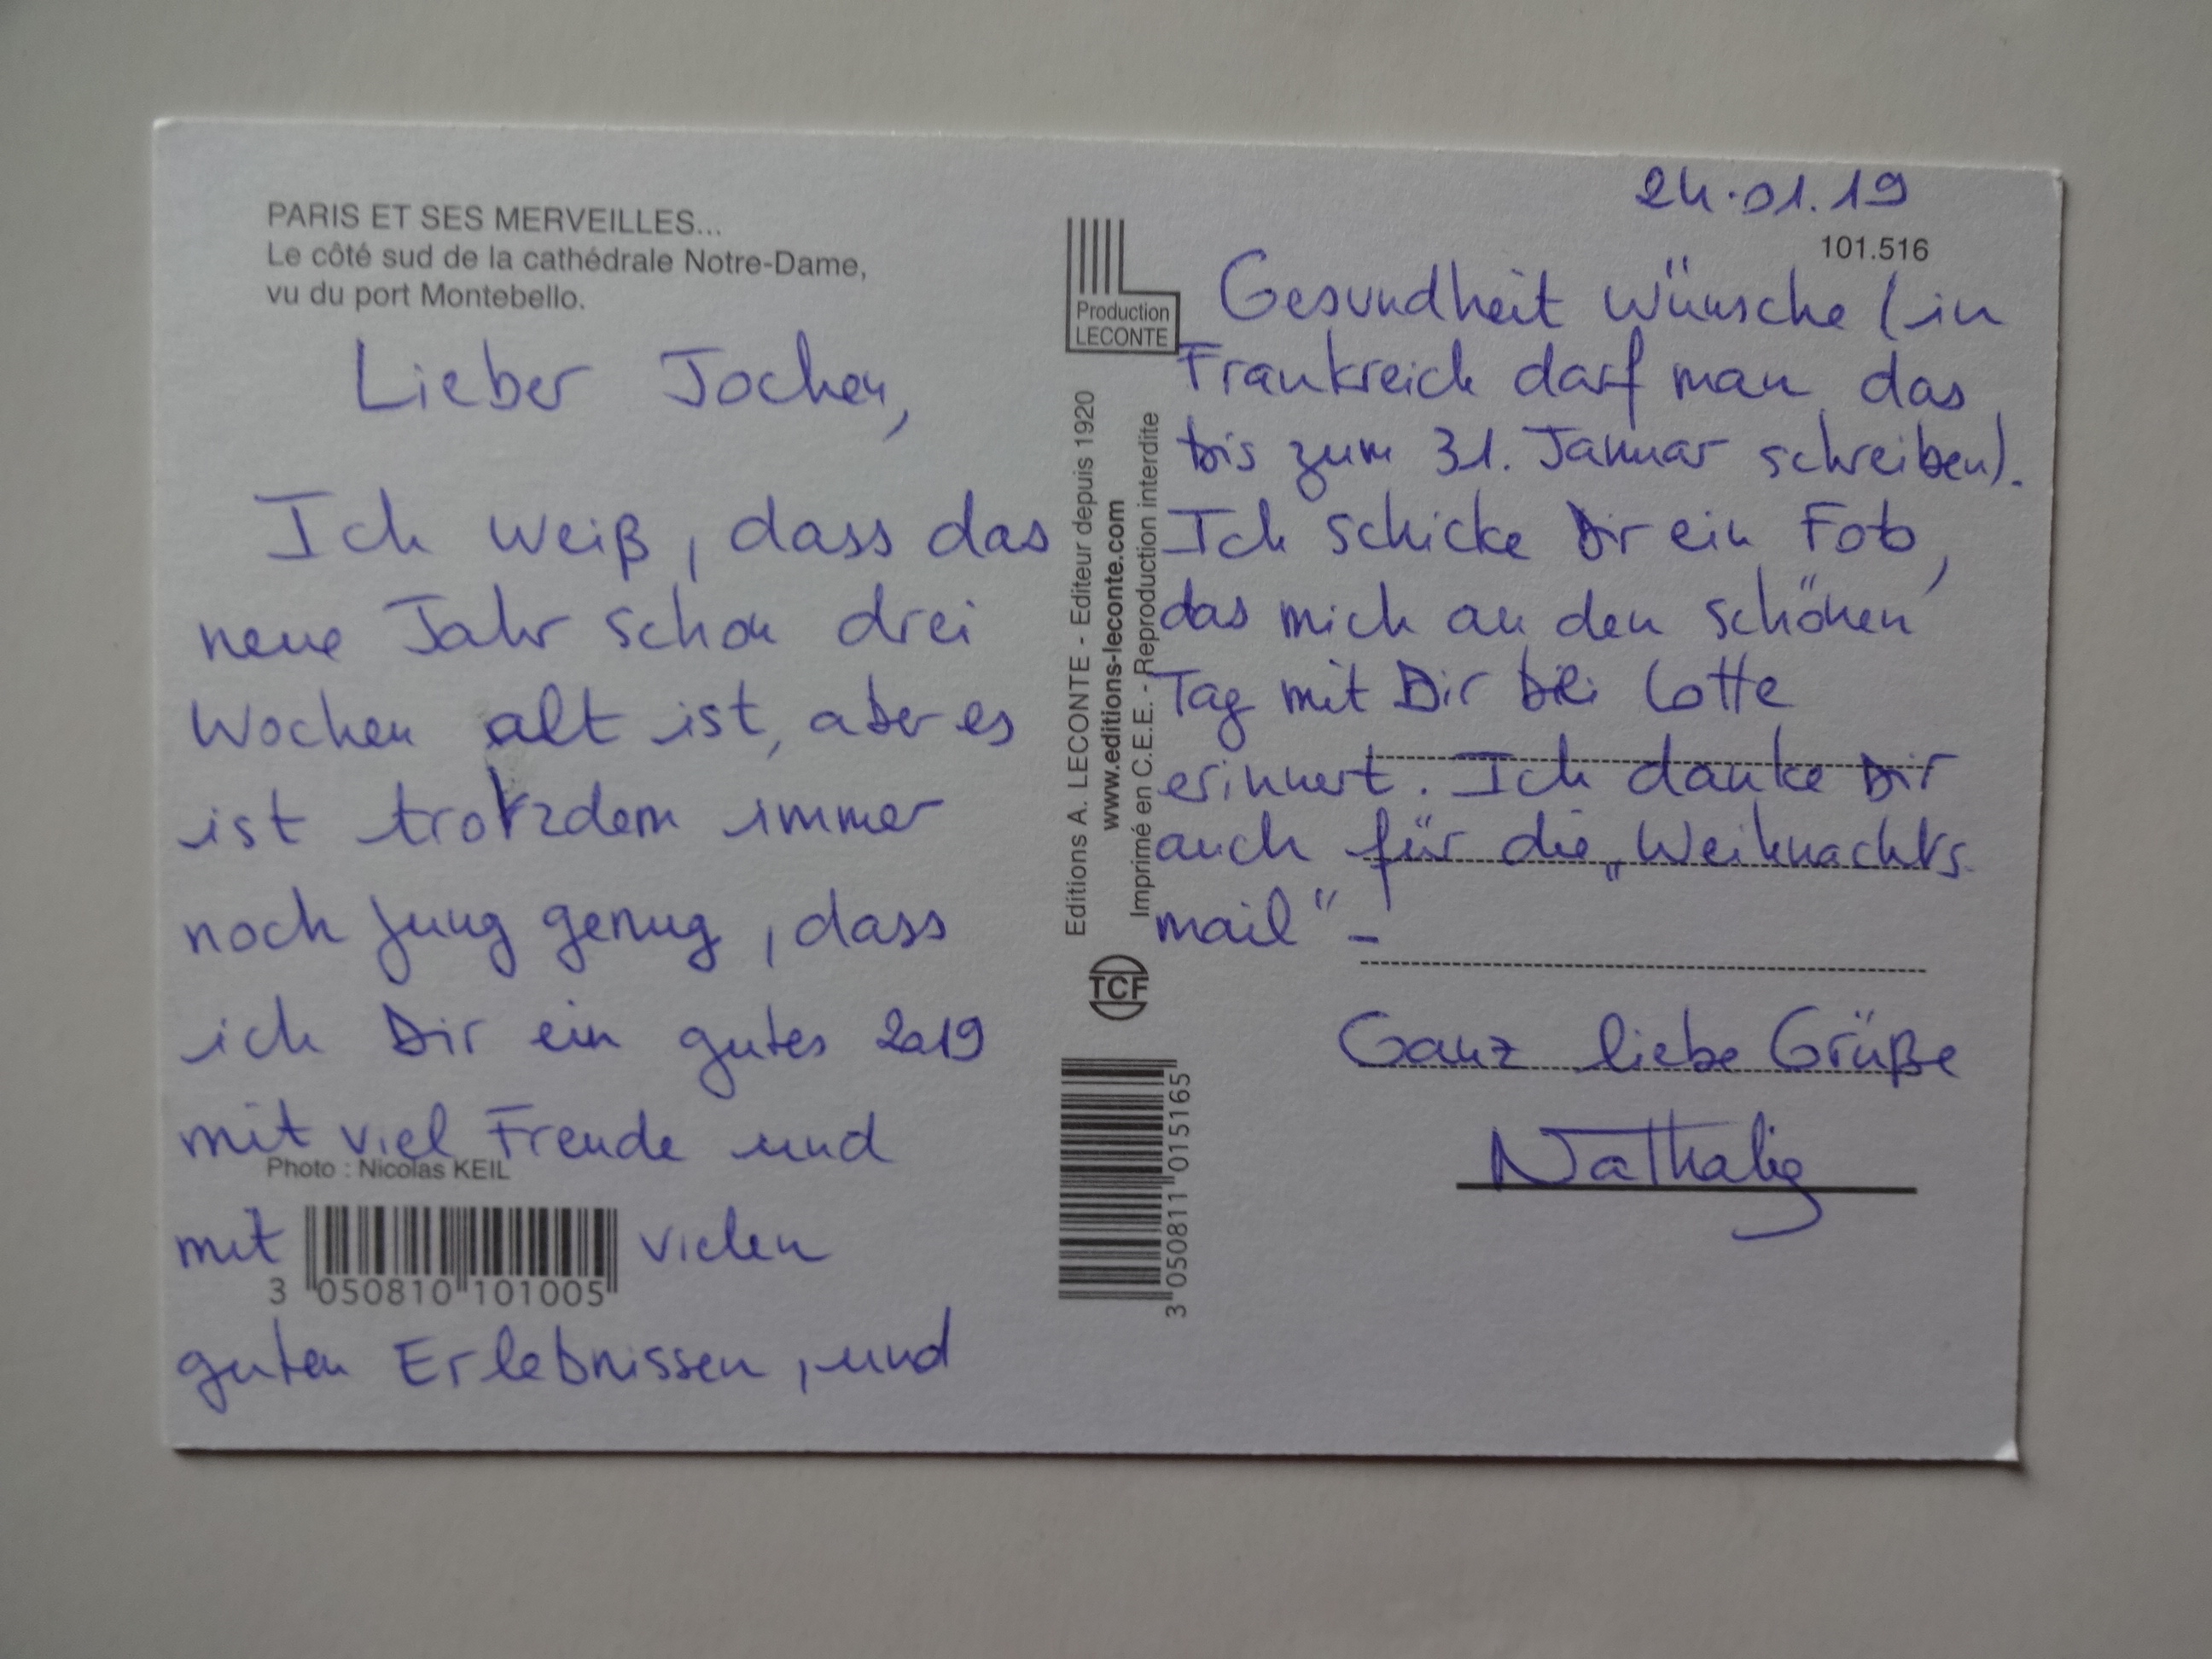 PARIS ET SES MERVEILLES...
Le côté sud de la cathédrale Notre-Dame,
vu du port Montebello.
Lieber Jochen,
Ich weiß, dass das
neue Jahr schon drei
Wochen alt ist, aber es
ist trotzdem immer
noch jung genug, dass
ich Dir ein gutes 2019
mit viel Freude und
Photo : Nicolas KEIL
mit vielen
3 050810 101005
guten Erlebnissen, und
Production
LECONTE
Editions A. LECONTE - Editeur depuis 1920
www.editions-leconte.com
Imprimé en C.E.E. - Reproduction interdite
TCF
3 050811 015165
24.01.19
101.516
Gesundheit wünsche (in
Frankreich darf man das
bis zum 31. Januar schreiben).
Ich schicke Dir ein Foto,
das mich an den schönen
Tag mit Dir bei Lotte
erinnert. Ich danke Dir
auch für die „Weihnachts-
mail" -
Ganz liebe Grüße
Nathalie